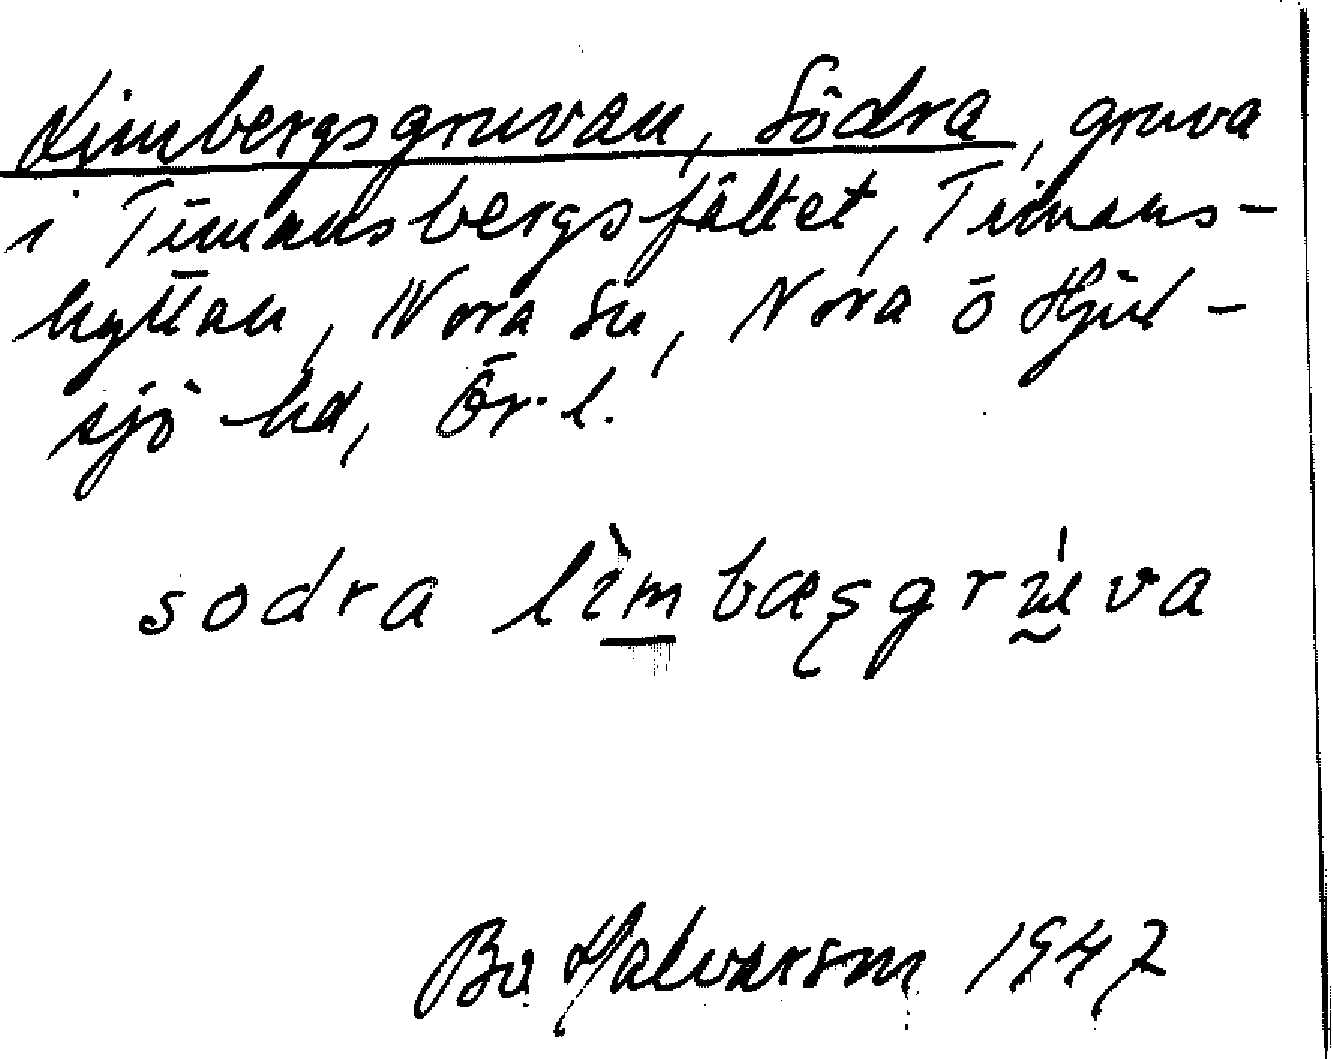 Limbergsgruvan, Södra, gruva
i Timansbergsfältet, Timans-
hyttan, Nora sn, Nora o Hjul-
sjö hd, Ör. l.
sodra lìmbæşgrúva
Bo Halvarson 1947